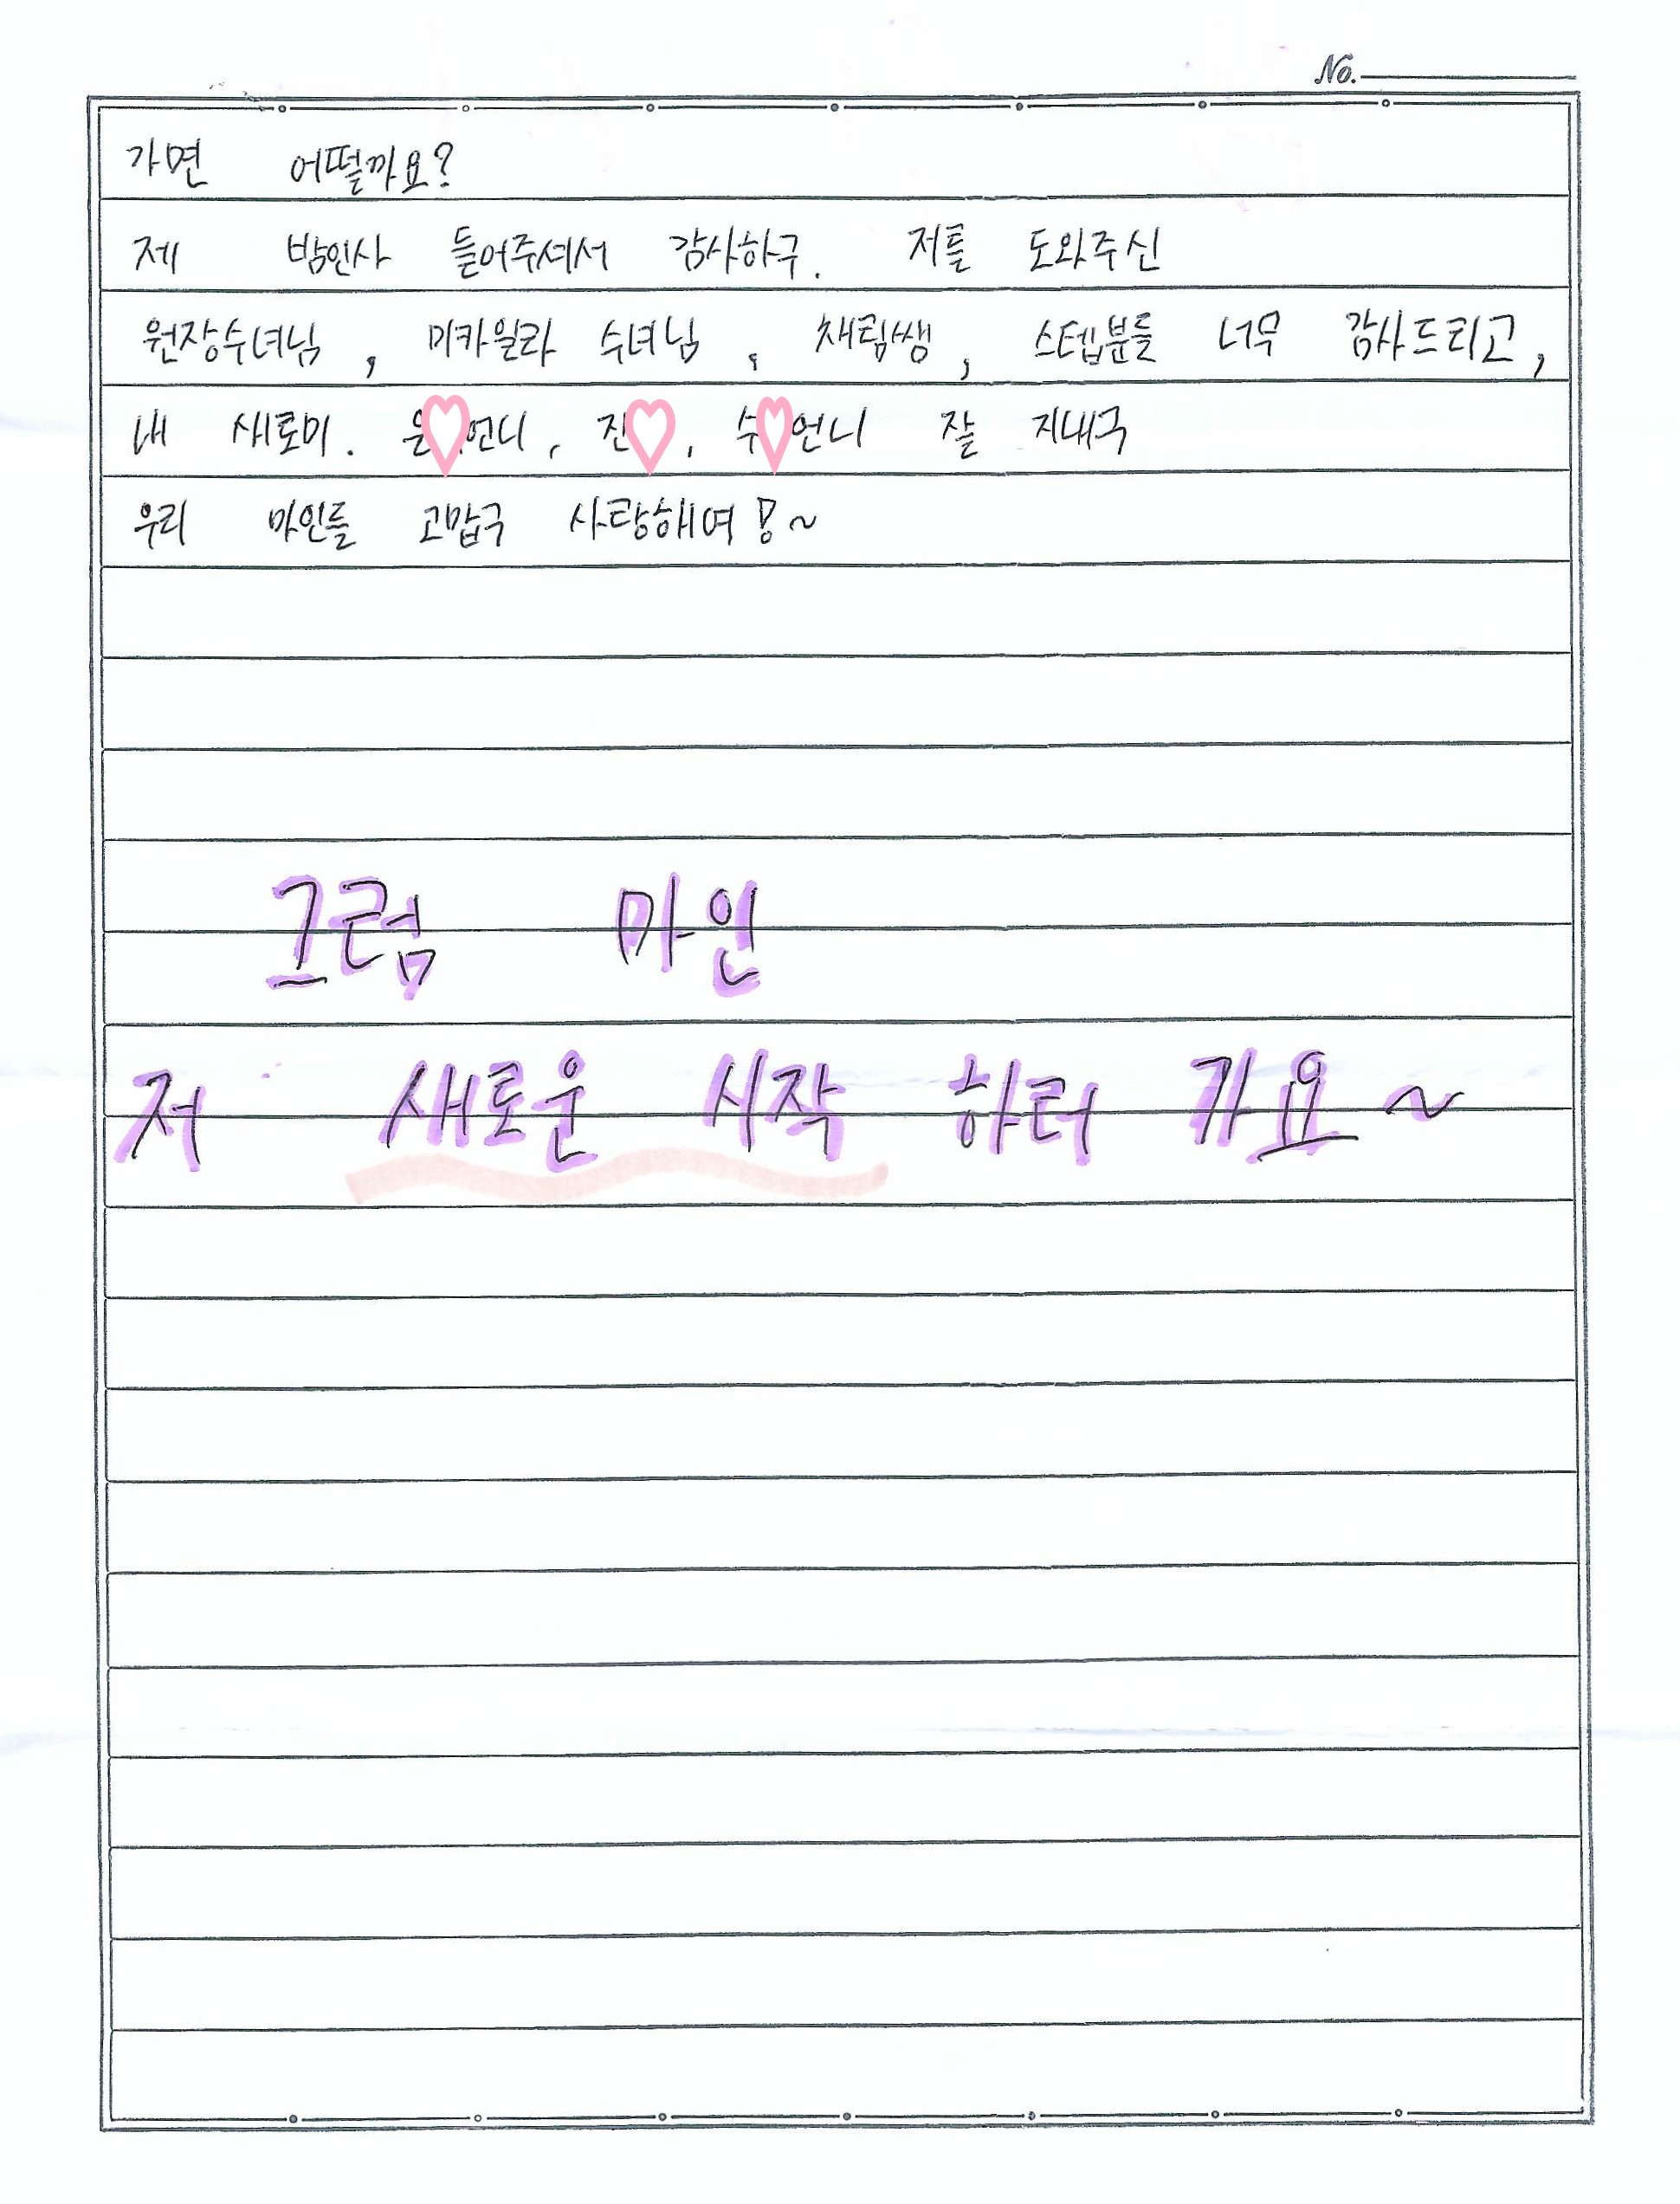 No.
가면 어떨까요?
제 밤인사 들어주셔서 감사하구. 저를 도와주신
원장수녀님, 미카일라 수녀님, 채림쌤, 스텝분들 너무 감사드리고,
내 새로미. 은♡언니, 진♡, 수♡언니 잘 지내구
우리 마인들 고맙구 사랑해여!~
그럼 마인
저 새로운 시작 하러 가요~